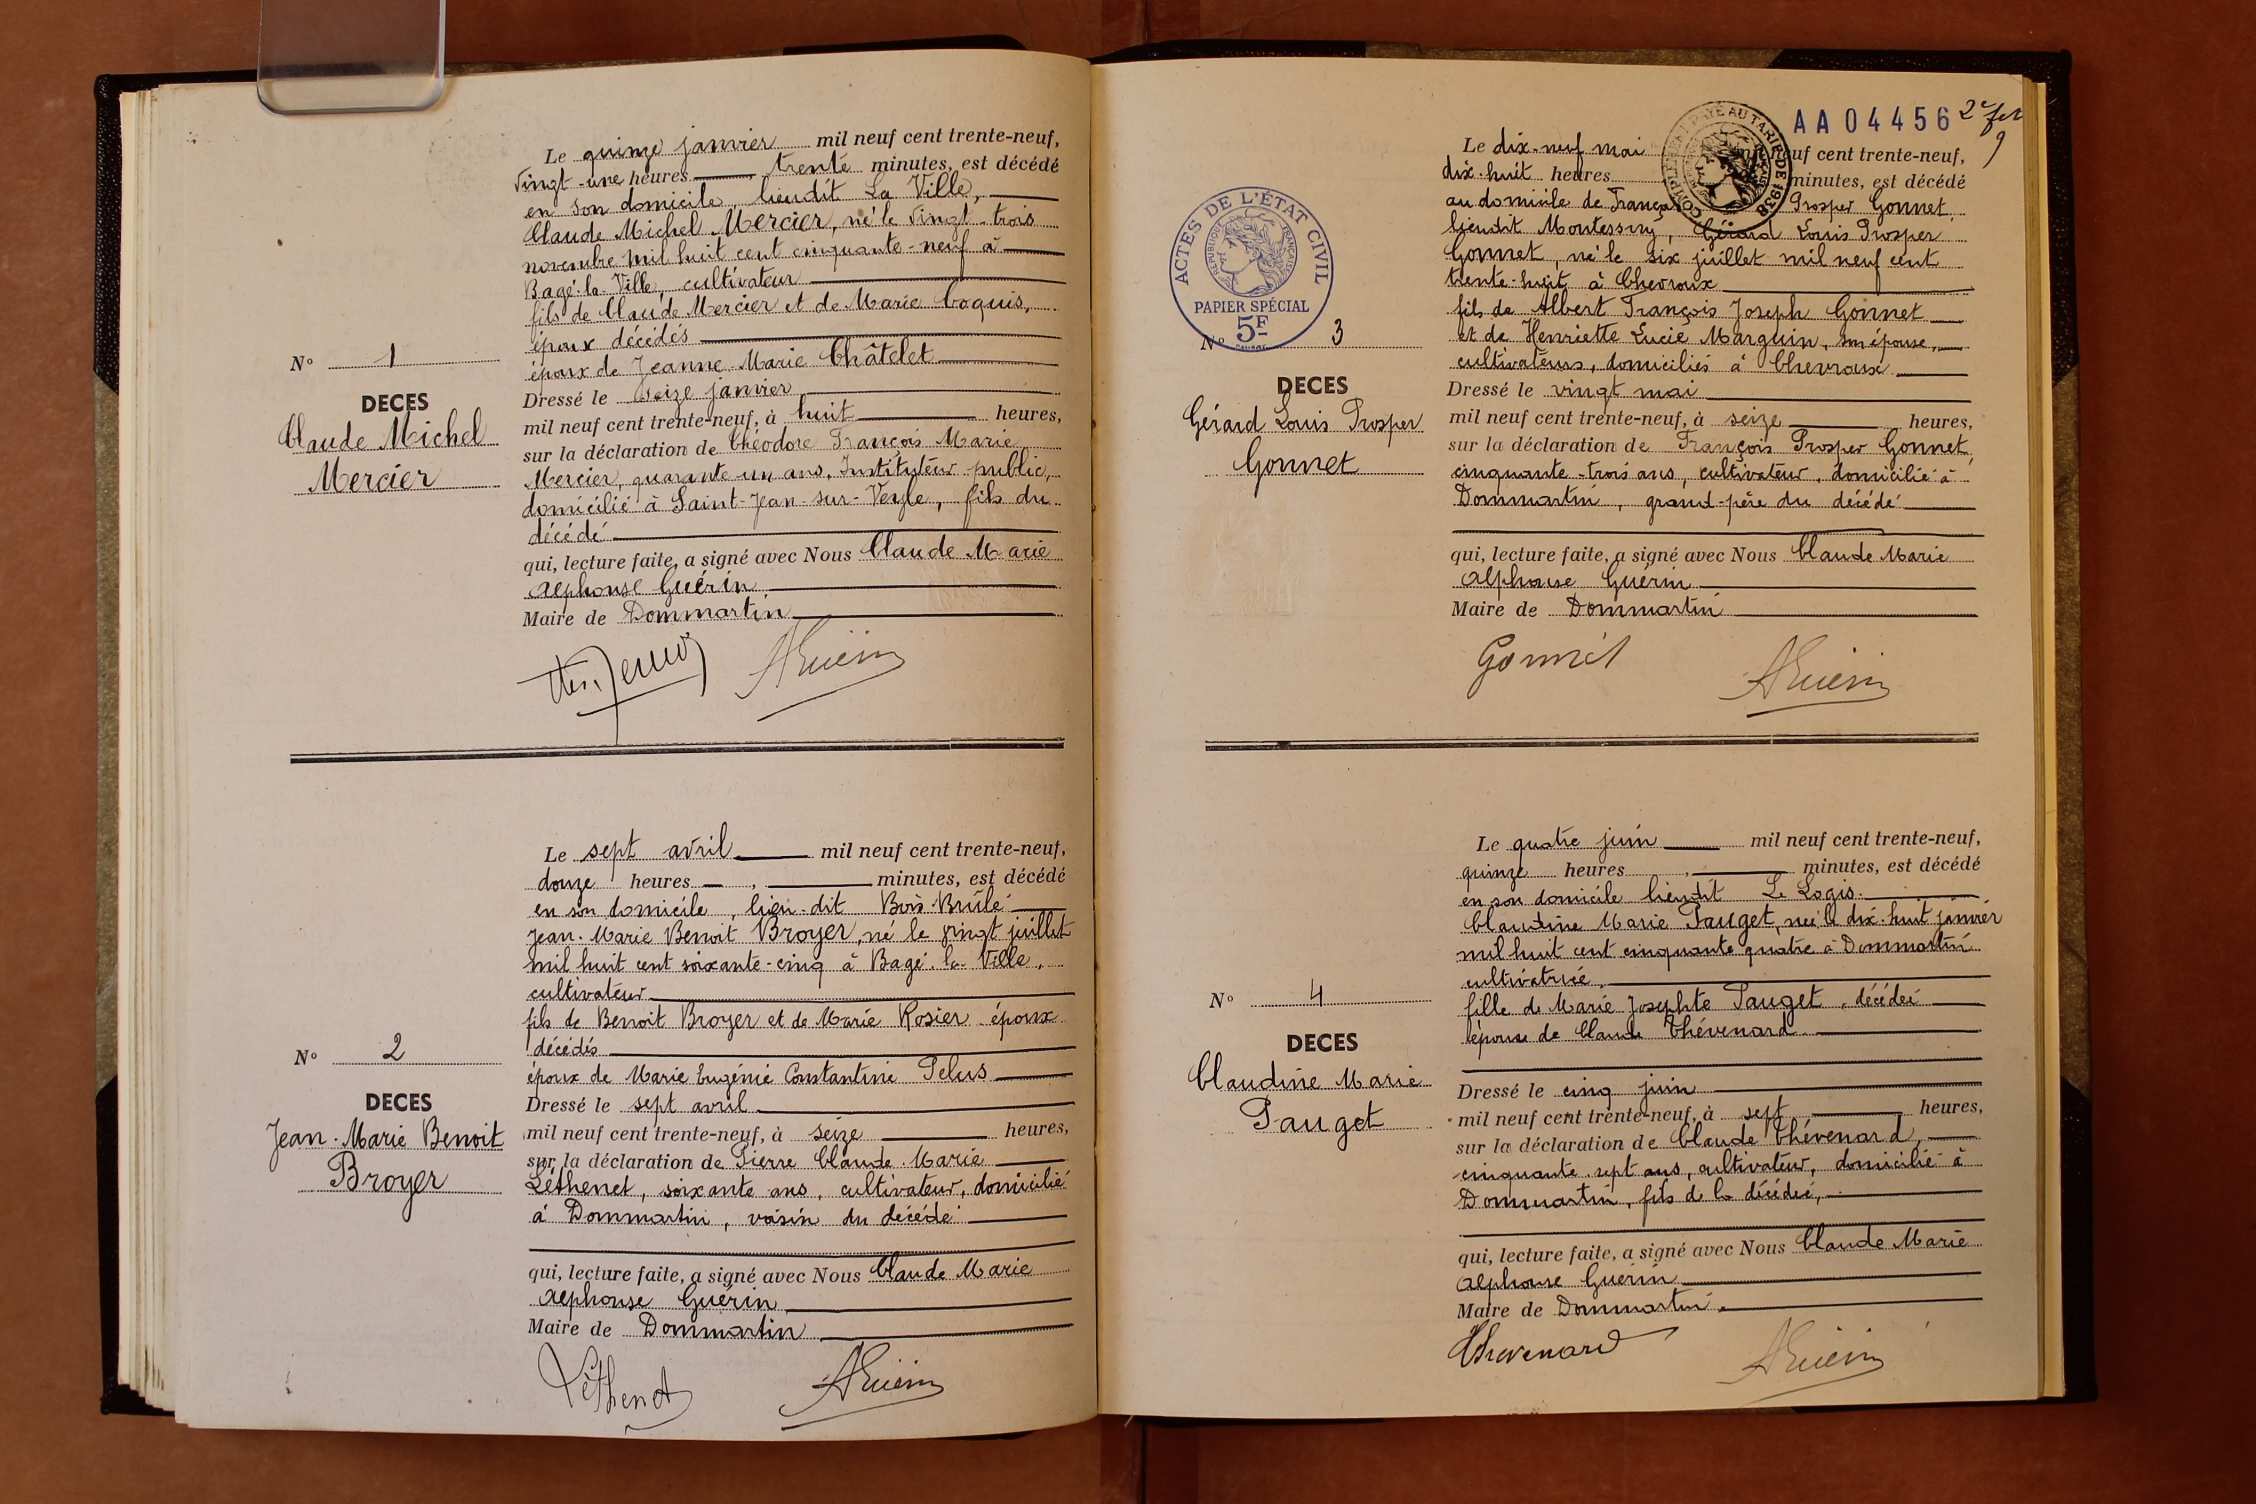 Le quinze janvier mil neuf cent trente-neuf,
vingt-une heures trente minutes, est décédé
en son domicile, lieudit La Ville,
Claude Michel Mercier, né le vingt-trois
novembre mil huit cent cinquante-neuf à
Bagé-la-Ville, cultivateur
fils de Claude Mercier et de Marie Coquis,
époux décédés
N° 1
époux de Jeanne-Marie Châtelet
DECES
Dressé le seize janvier
Claude Michel
mil neuf cent trente-neuf, à huit heures,
sur la déclaration de Théodore François Marie
Mercier
Mercier, quarante un ans, Instituteur public,
domicilié à Saint-Jean-sur-Veyle, fils du
décédé
qui, lecture faite, a signé avec Nous Claude Marie
Alphonse Guérin
Maire de Dommartin
AGuérin
Le sept avril mil neuf cent trente-neuf,
douze heures, minutes, est décédé
en son domicile, lieu-dit Bois-Brûlé
Jean-Marie Benoit Broyer, né le vingt juillet
mil huit cent soixante-cinq à Bagé-la-Ville,
cultivateur
fils de Benoit Broyer et de Marie Rosier époux
décédés
N° 2
époux de Marie Eugénie Constantine Pelus
DECES
Dressé le sept avril
Jean-Marie Benoit
mil neuf cent trente-neuf, à seize heures,
Broyer
sur la déclaration de Pierre Claude-Marie
Léthenet, soixante ans, cultivateur, domicilié
à Dommartin, voisin du décédé
qui, lecture faite, a signé avec Nous Claude Marie
Alphonse Guérin
Maire de Dommartin
Léthenet AGuérin
AA 04456 2e
Le dix-neuf mai neuf cent trente-neuf,
dix-huit heures minutes, est décédé
au domicile de Prosper Gonnet,
lieudit Montessuy, Gérard Louis Prosper
Gonnet, né le six juillet mil neuf cent
trente-huit à Chevroux
fils de Albert François Joseph Gonnet
et de Henriette Lucie Marguin, son épouse,
cultivateurs, domiciliés à Chevroux
ACTES DE L'ÉTAT CIVIL
RÉPUBLIQUE FRANÇAISE
PAPIER SPÉCIAL
5F
N° 3
DECES
Dressé le vingt mai
Gérard Louis Prosper
mil neuf cent trente-neuf, à seize heures,
Gonnet
sur la déclaration de François Prosper Gonnet,
cinquante-trois ans, cultivateur, domicilié à
Dommartin, grand-père du décédé
qui, lecture faite, a signé avec Nous Claude Marie
Alphonse Guérin
Maire de Dommartin
Gonnet AGuérin
Le quatre juin mil neuf cent trente-neuf,
quinze heures, minutes, est décédé
en son domicile lieudit Le Logis.
Claudine Marie Pauget, née le dix-huit janvier
mil huit cent cinquante quatre à Dommartin
cultivatrice,
fille de Marie Josephte Pauget, décédée
épouse de Claude Thévenard
N° 4
DECES
Claudine Marie
Dressé le cinq juin
Pauget
mil neuf cent trente-neuf, à sept heures,
sur la déclaration de Claude Thévenard,
cinquante-sept ans, cultivateur, domicilié à
Dommartin, fils de la décédée,
qui, lecture faite, a signé avec Nous Claude Marie
Alphonse Guérin
Maire de Dommartin.
Thevenard AGuérin